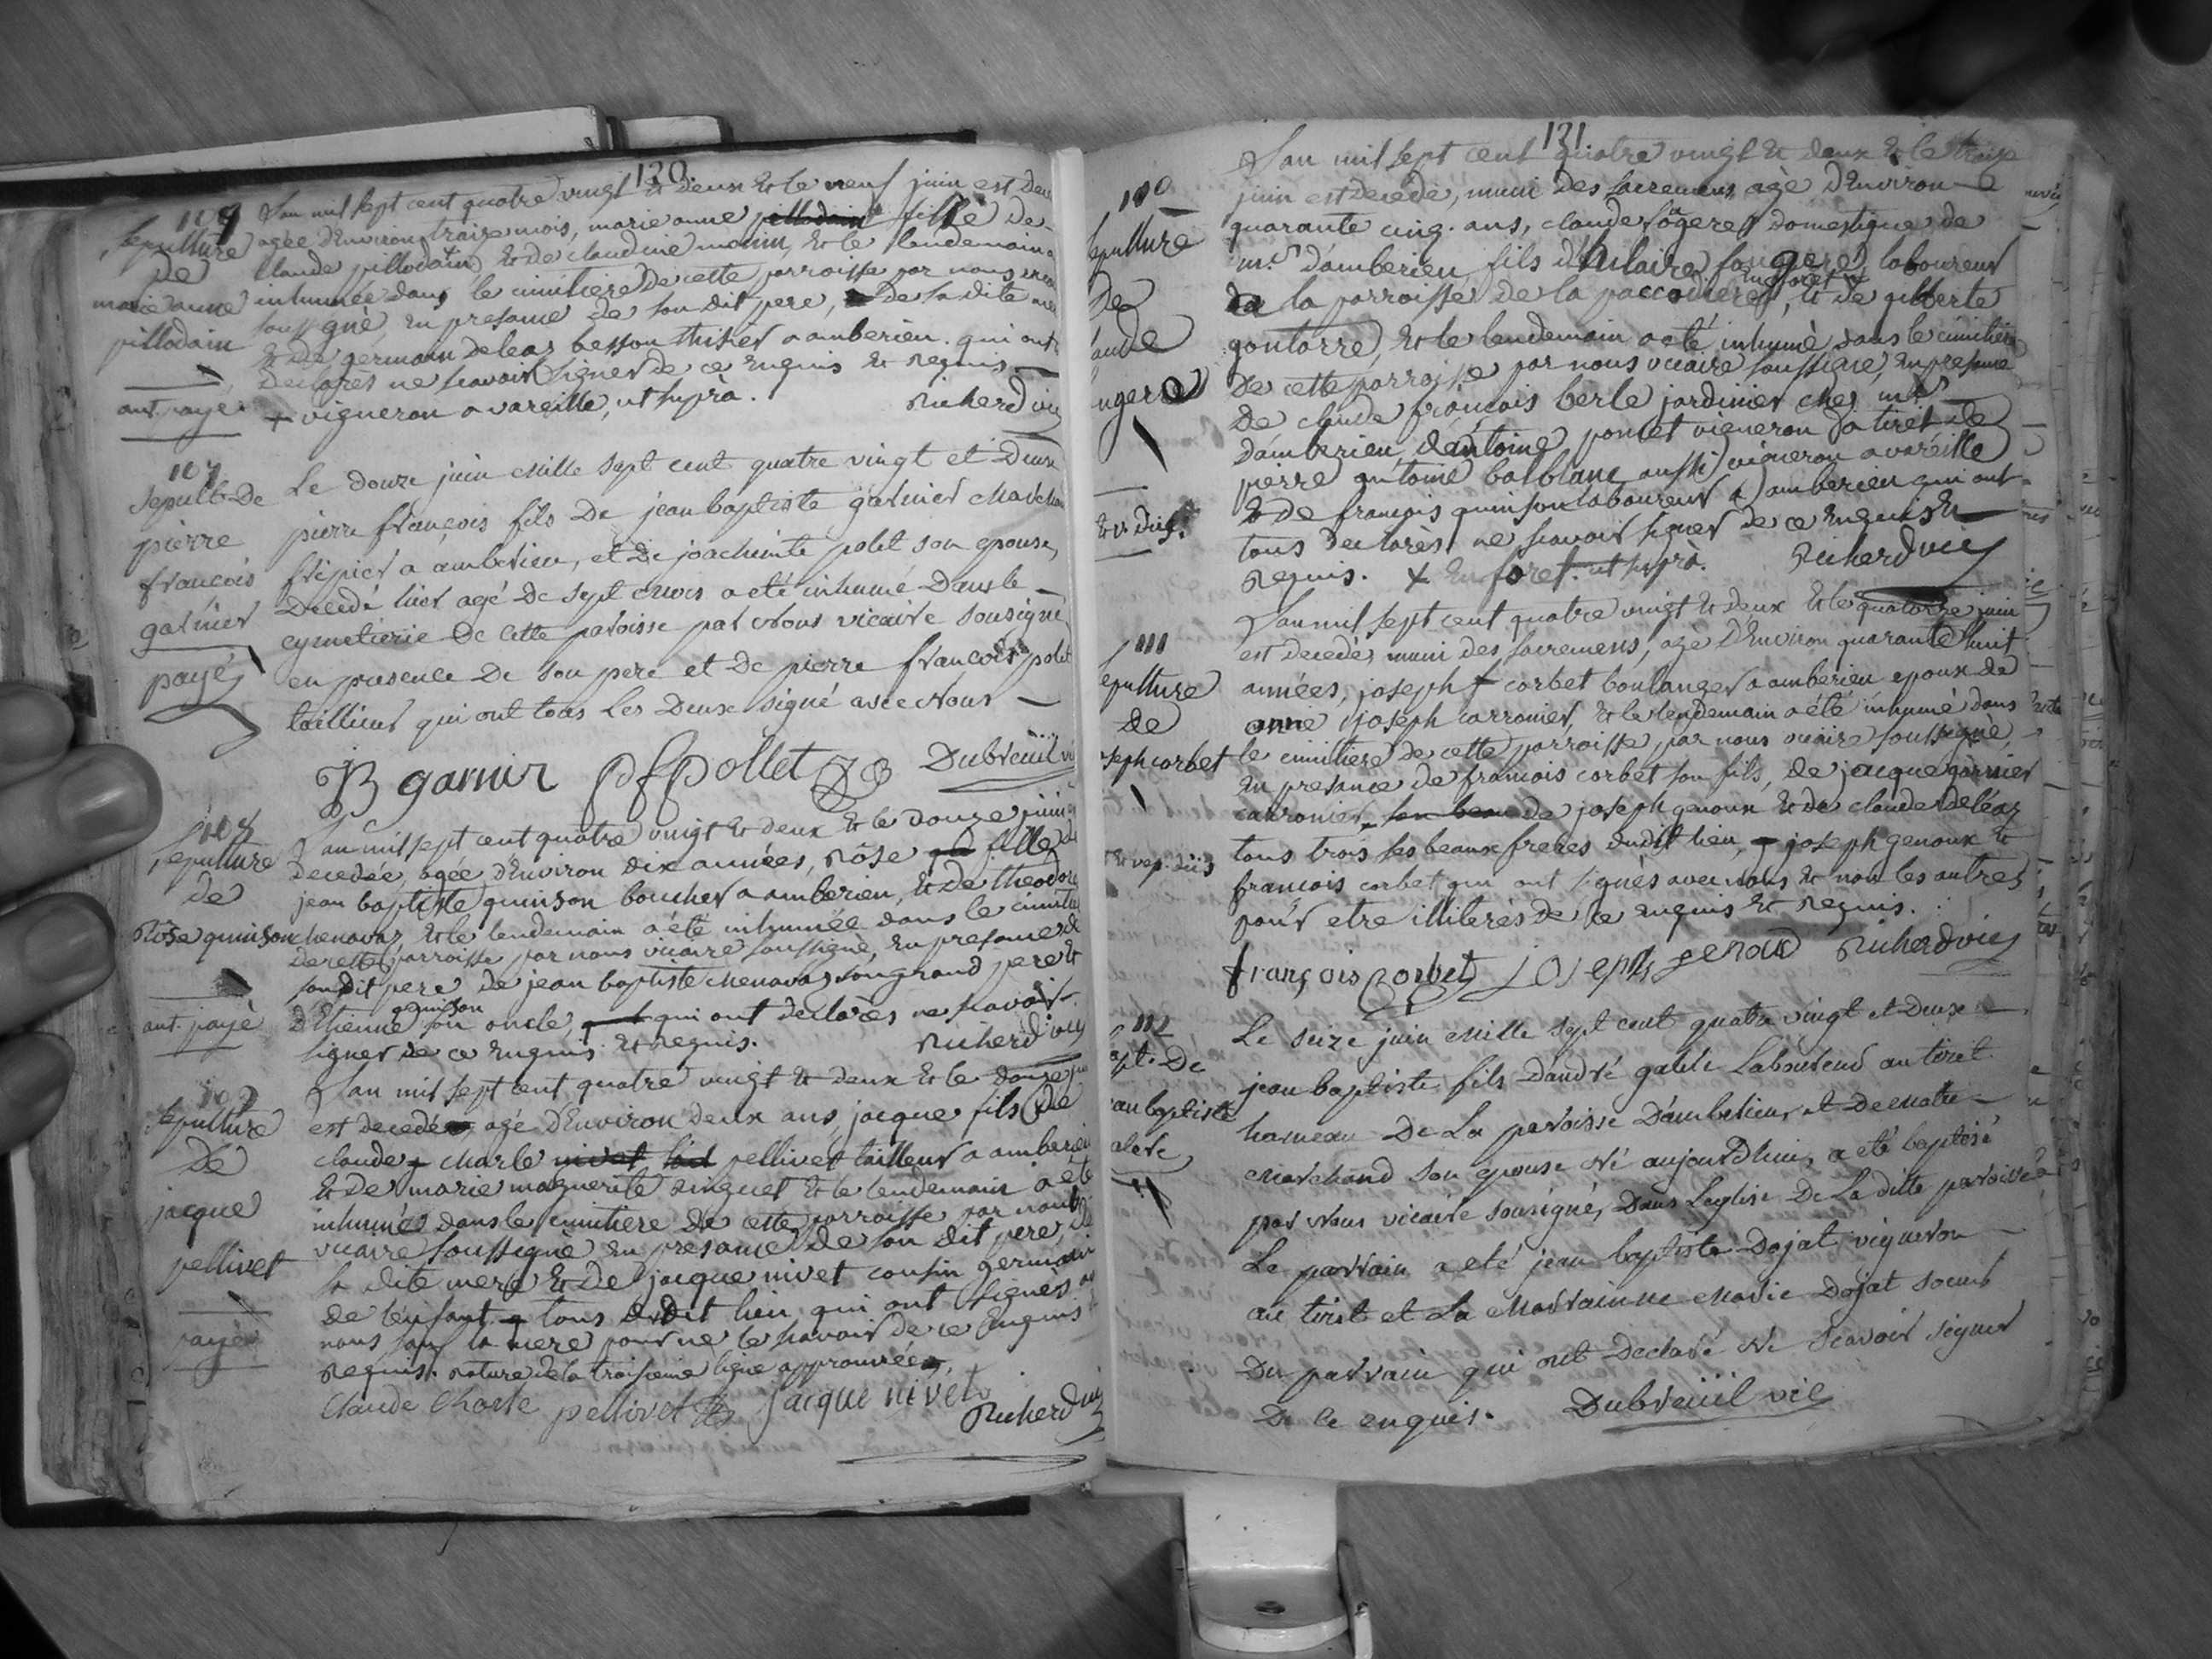 120
109
Sepulture
de
marie anne
pillodain
ant. payé
L'an mil sept cent quatre vingt & deux & le neuf juin est
agée d'Environ traize mois, marie anne fille de
Claude pillodain & de claudine monin, & le lendemain a
inhumée dans le cimitiere de cette parroisse par nous
soussigné, en presance de son dit pere, de sa dite
& de germain deleaz besson thisier a amberieu qui ont
declarés ne scavoir signer de ce Enquis & Requis
+ vigneron a vareille, ut suprà. Richerd vic
107
Sepult. De
pierre
françois
garnier
payé
Le douze juin mille sept cent quatre vingt et Deux
pierre françois fils De jean baptiste garnier
fripier a amberieu, et De joachimte polet son epouse,
Decedé hier agé De sept mois a eté inhumé Dans le
cymetierie De cette paroisse par Nous vicaire sousigné
en presence De son pere et De pierre françois polet
taillieur qui ont tous Les Deux signé avec Nous
JB garnier pfpollet Dubreüil vic
108
Sepulture
de
Rôse quinson
ant. payé
L'an mil sept cent quatre vingt & deux & le douze juin
decedée, agée d'Environ dix années, Rôse fille
jean baptiste quinson boucher a amberieu, & de theodore
chenavaz, & le lendemain a été inhumée dans le
de cette parroisse par nous vicaire soussigné, en presance de
sondit pere de jean baptiste chenavaz son grand pere &
d'Etienne quinson son oncle, qui ont declarés ne scavoir
signer de ce Enquis & Requis. Richerd vic
109
Sepulture
De
jacque
pellivet
payé
L'an mil sept cent quatre vingt & deux & le douze
est decedé, agé d'Environ deux ans, jacque fils de
claude charle pellivet tailleur a amberieu
& de marie marguerite & le lendemain a été
inhumé dans le cimitiere de cette parroisse par nous
vicaire soussigné en presance de son dit pere, de
sa dite mere & de jacque nivet cousin germain
de l'enfant tous dudit lieu qui ont signés
nous sauf la mere pour ne le scavoir de ce Enquis
Requis. Rature de la troisieme ligne approuvée.
Claude Charle pellivet jacque nivet
Richerd vic
121
110
Sepulture
De
L'an mil sept cent quatre vingt & deux & le traize
juin est decedé, muni des sacremens, agé d'Environ
quarante cinq ans, claude fogere domestique de
mr. d'amberieu fils d'hilaire fougere laboureur
de la parroisse de la paccodiere, & de gilberte
gontarre, & le lendemain a eté inhumé dans le cimitiere
De cette parroisse par nous vicaire soussigné, en presance
De claude françois berle jardinier ches mr.
d'amberieu, d'antoine poncet vigneron au tiret de
pierre antoine balblanc aussi vigneron a vareille
& de françois quinson laboureur a amberieu qui ont
tous declarés ne scavoir signer de ce Enquis &
Requis. + En foret. ut suprà. Richerd vic
111
Sepulture
de
joseph corbet
L'an mil sept cent quatre vingt & deux & le quatorze juin
est decedé, muni des sacremens, agé d'Environ quarante huit
années, joseph corbet boulanger a amberieu epoux de
anne joseph carronier, & le lendemain a été inhumé dans
le cimitiere de cette parroisse, par nous vicaire soussigné,
en presance de françois corbet son fils, de jacque garnier
carronier, de joseph genoux & de claude deléaz
tous trois ses beaux freres dudit lieu, joseph genoux &
françois corbet qui ont signés avec nous & non les autres
pour etre illiterés de ce enquis & Requis.
françois Corbet joseph genoud Richerd vic
112
Le seize juin mille sept cent quatre vingt et Deux
jean baptiste fils D'andré Laboureur au tiret
hameau De La paroisse D'amberieux et De
Marchand son epouse Né aujourD'huis, a eté baptisé
par Nous vicaire sousigné, Dans L'eglise De La ditte paroisse
Le parrain a eté jean baptiste Dojat vigneron
au tiret et La Marrainne Marie Dojat soeur
Du parrain qui ont Declaré Ne Scavoir signer
De ce enquis. Dubreüil vic